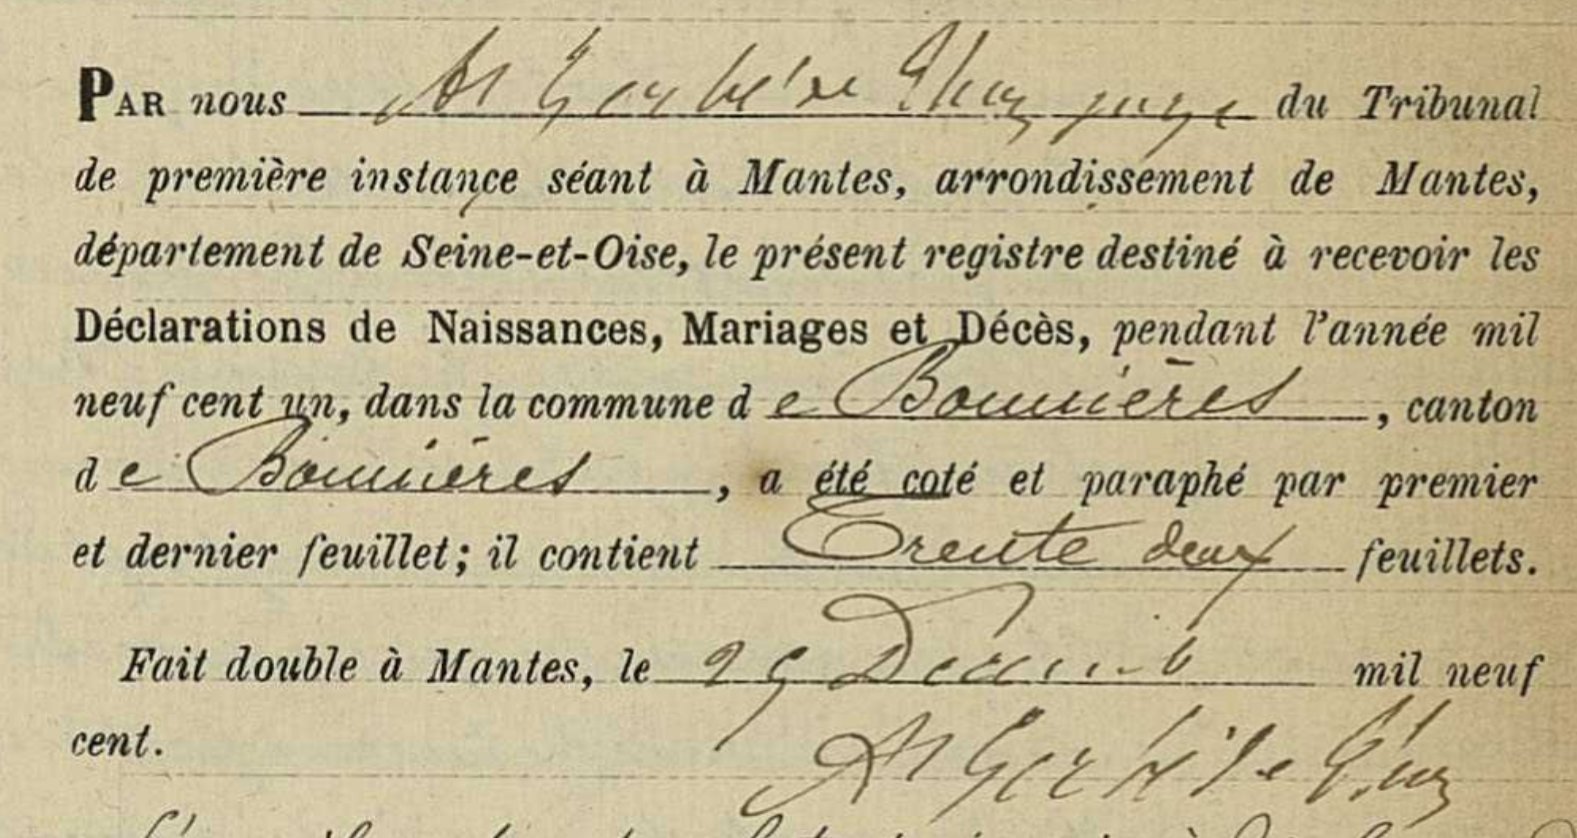 PAR nous juge du Tribunal
de première instance séant à Mantes, arrondissement de Mantes,
département de Seine-et-Oise, le présent registre destiné à recevoir les
Déclarations de Naissances, Mariages et Décès, pendant l'année mil
neuf cent un, dans la commune de Bonnières, canton
de Bonnières, a été coté et paraphé par premier
et dernier feuillet; il contient Trente deux feuillets.
Fait double à Mantes, le 29 Décemb mil neuf
cent.